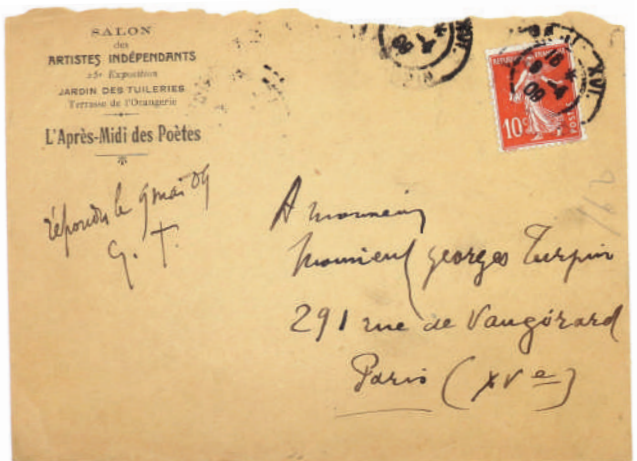 SALON
des
ARTISTES INDÉPENDANTS
25e Exposition
JARDIN DES TUILERIES
Terrasse de l'Orangerie
L'Après-Midi des Poètes
répondu le 9 mai 09
G. T.
XVI
10c
POSTES
09
XVI
A monsieur
Monsieur georges Turpin
291 rue de Vaugirard
Paris (XVe)